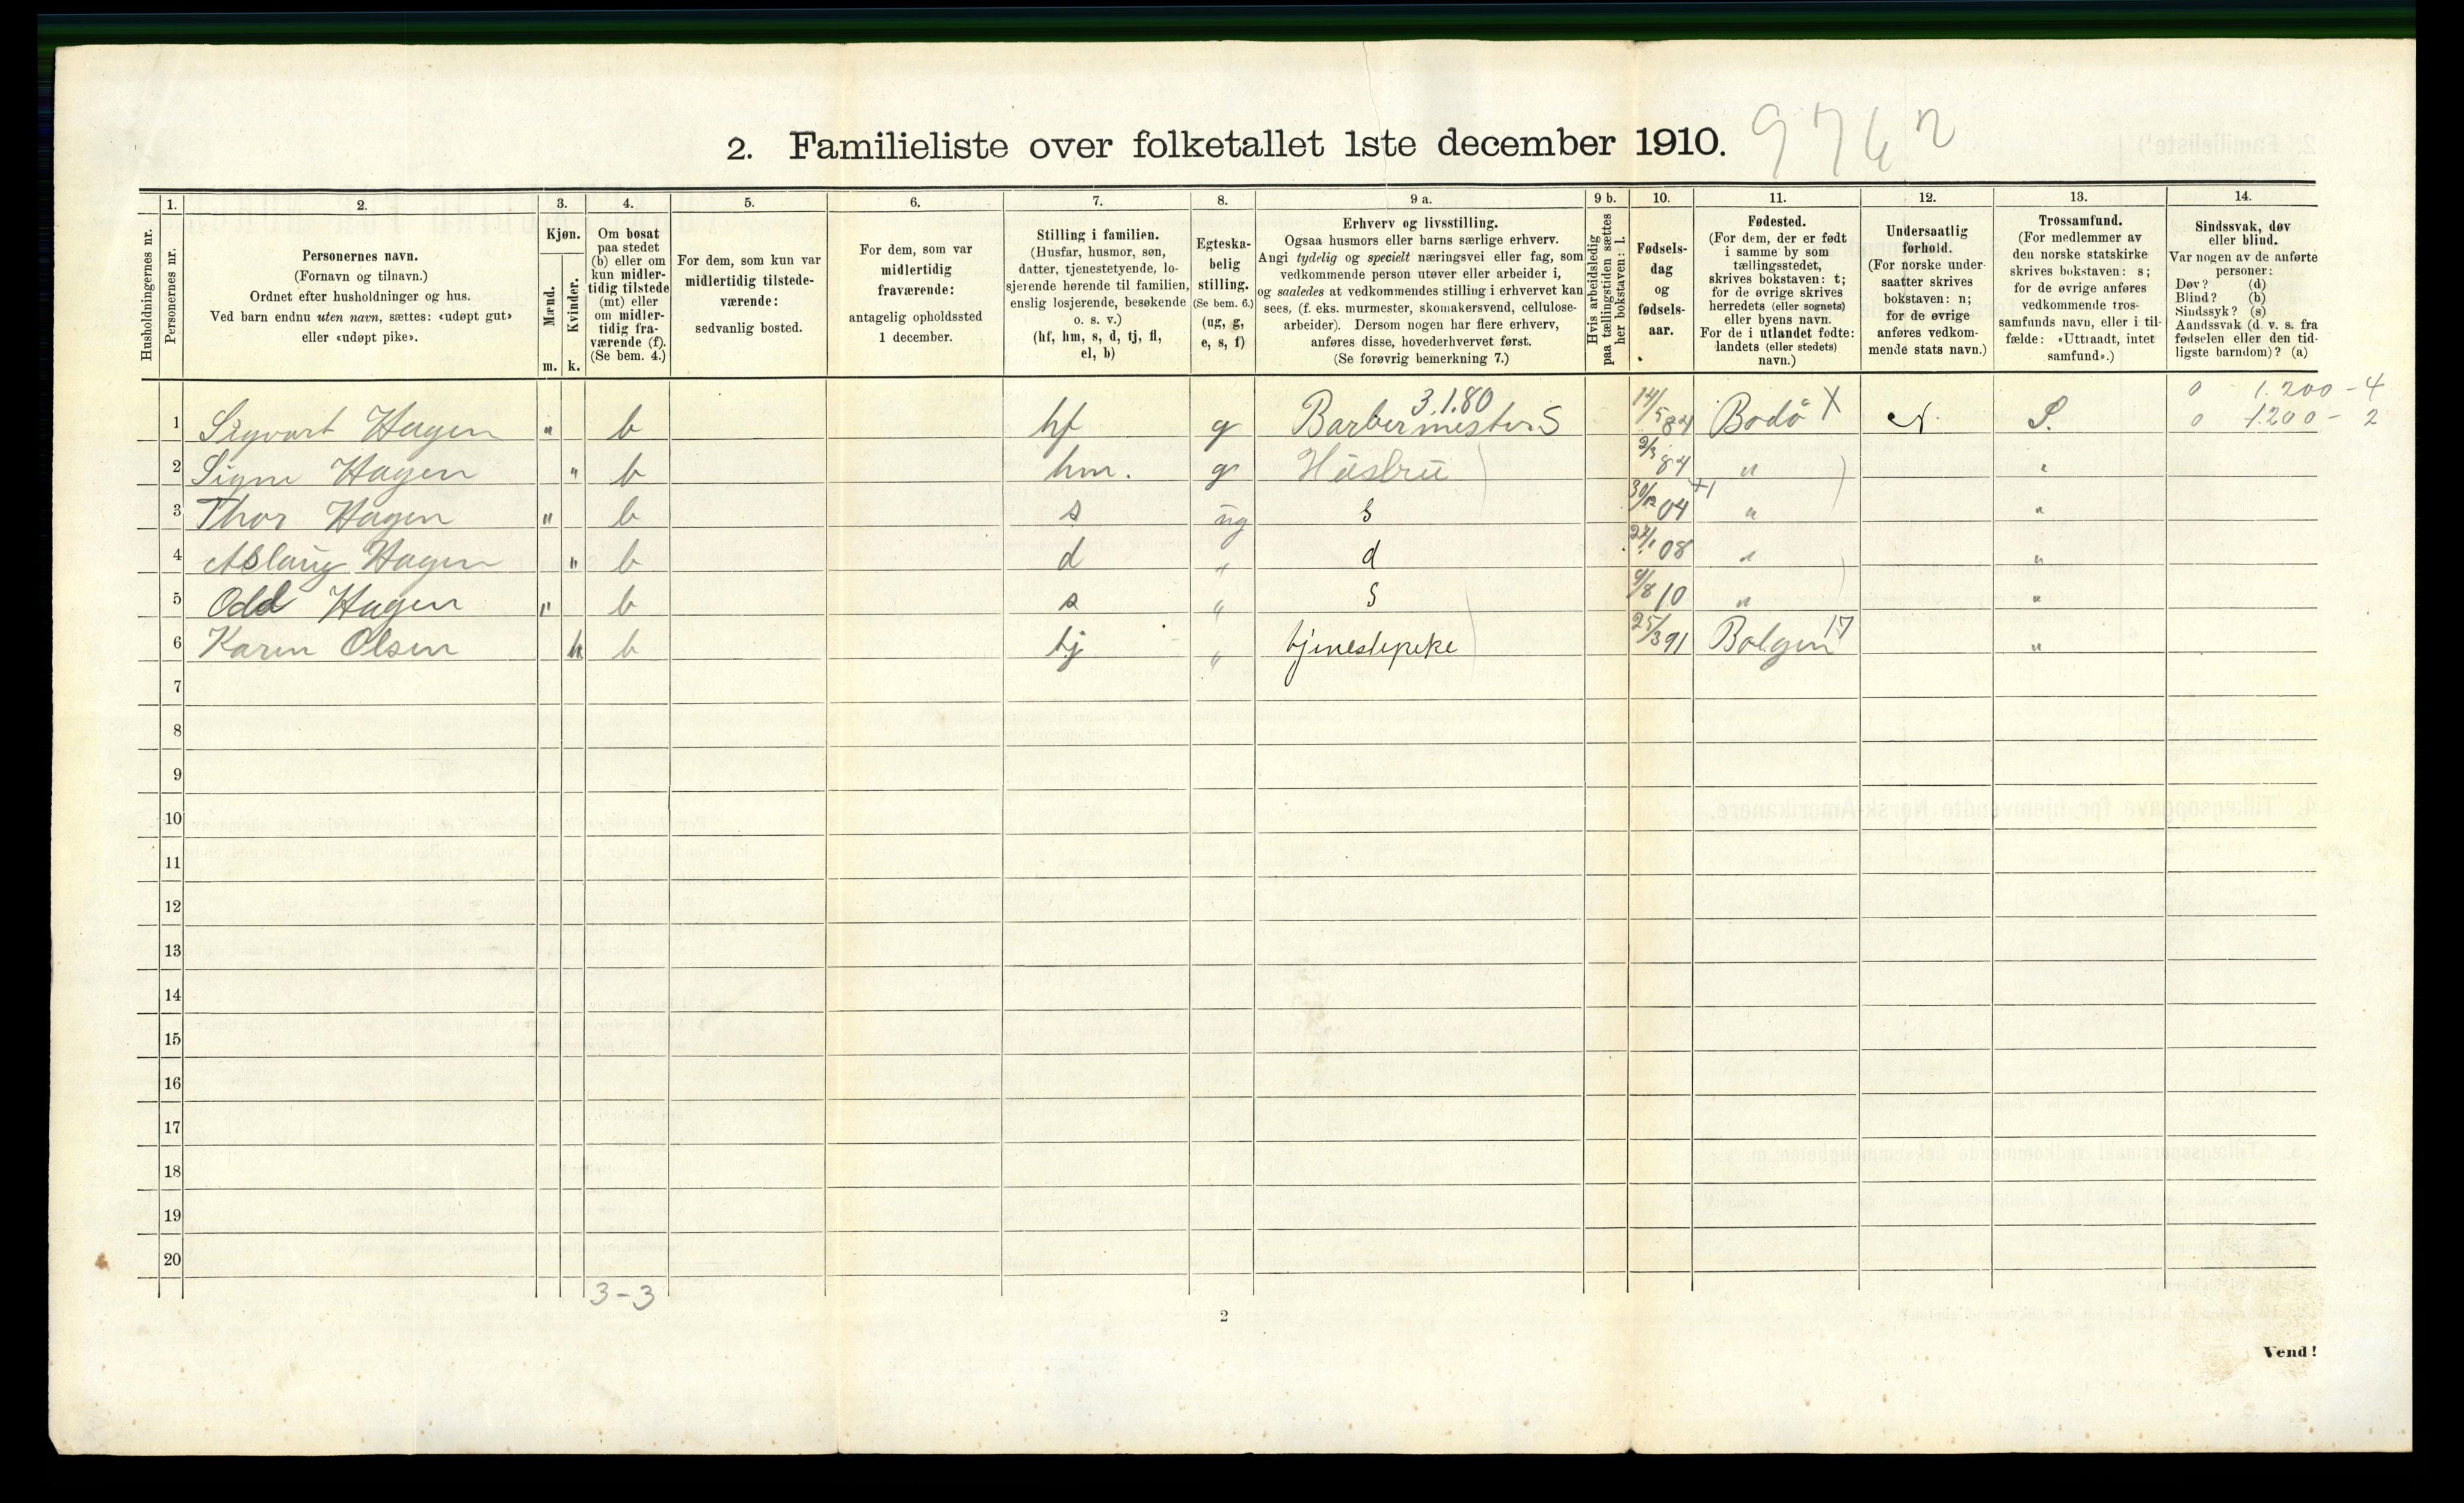 2. Familieliste over folketallet 1ste december 1910. 9762
Husholdningernes nr.
1. Personernes nr.
2. Personernes navn.
(Fornavn og tilnavn.)
Ordnet efter husholdninger og hus.
Ved barn endnu uten navn, sættes: «udøpt gut»
eller «udøpt pike».
3. Kjøn.
Mænd. m.
Kvinder. k.
4. Om bosat
paa stedet
(b) eller om
kun midler-
tidig tilstede
(mt) eller
om midler-
tidig fra-
værende (f).
(Se bem. 4.)
5. For dem, som kun var
midlertidig tilstede-
værende:
sedvanlig bosted.
6. For dem, som var
midlertidig
fraværende:
antagelig opholdssted
1 december.
7. Stilling i familien.
(Husfar, husmor, søn,
datter, tjenestetyende, lo-
sjerende hørende til familien,
enslig losjerende, besøkende
o. s. v.)
(hf, hm, s, d, tj, fl,
el, b)
8. Egteska-
belig
stilling.
(Se bem. 6.)
(ug, g,
e, s, f)
9 a. Erhverv og livsstilling.
Ogsaa husmors eller barns særlige erhverv.
Angi tydelig og specielt næringsvei eller fag, som
vedkommende person utøver eller arbeider i,
og saaledes at vedkommendes stilling i erhvervet kan
sees, (f. eks. murmester, skomakersvend, cellulose-
arbeider). Dersom nogen har flere erhverv,
anføres disse, hovederhvervet først.
(Se forøvrig bemerkning 7.)
9 b. Hvis arbeidsledig
paa tællingstiden sættes
her bokstaven: l.
10. Fødsels-
dag
og
fødsels-
aar.
11. Fødested.
(For dem, der er født
i samme by som
tællingsstedet,
skrives bokstaven: t;
for de øvrige skrives
herredets (eller sognets)
eller byens navn.
For de i utlandet fødte:
landets (eller stedets)
navn.)
12. Undersaatlig
forhold.
(For norske under-
saatter skrives
bokstaven: n;
for de øvrige
anføres vedkom-
mende stats navn.)
13. Trossamfund.
(For medlemmer av
den norske statskirke
skrives bokstaven: s;
for de øvrige anføres
vedkommende tros-
samfunds navn, eller i til-
fælde: «Uttraadt, intet
samfund».)
14. Sindssvak, døv
eller blind.
Var nogen av de anførte
personer:
Døv? (d)
Blind? (b)
Sindssyk? (s)
Aandssvak (d. v. s. fra
fødselen eller den tid-
ligste barndom)? (a)
3.1.80 0 1.200 - 4
1 Sigvart Hagen " b hf g Barbermester S 14/5 84 Bodø X N. S. 0 1200 - 2
2 Signe Hagen " b hm. g Hustru 84 " "
3 Thor Hagen " b s ug s 30/12 04 " "
4 Aslaug Hagen " b d " d 08 " "
5 Odd Hagen " b s " s 10 " "
6 Karen Olsen k b tj " tjenestepike 25/3 91 17 "
7
8
9
10
11
12
13
14
15
16
17
18
19
20
3-3
2
Vend!